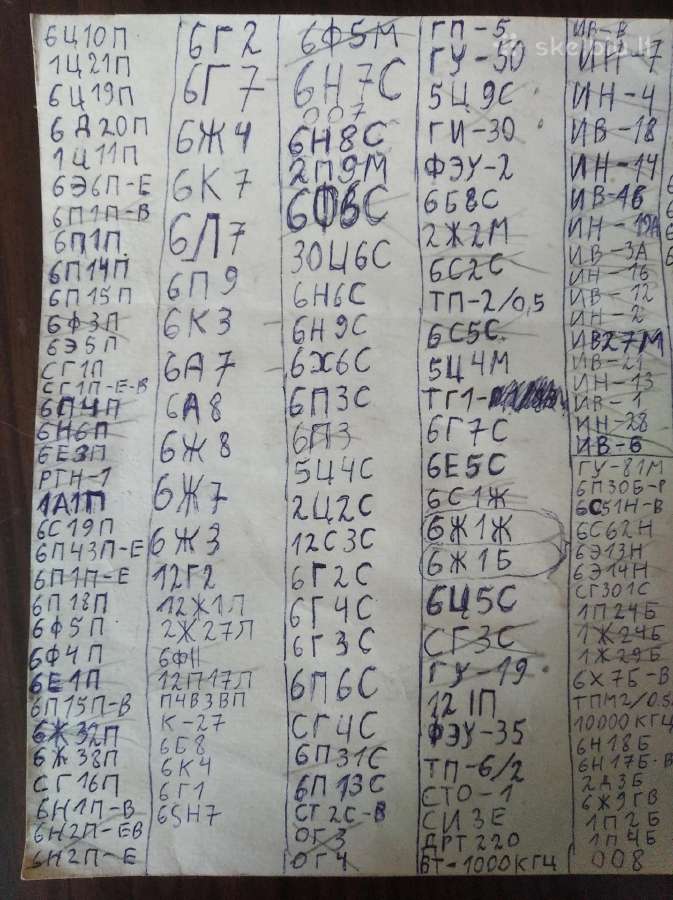 6Ц10П
1Ц21П
6Ц19П
6Д20П
1Ц11П
6Э6П-Е
6П1П-В
6П1П
6П14П
6П15П
6Ф3П
6Э5П
СГ1П
СГ1П-Е-В
6П4П
6Н6П
6Е3П
РТН-1
1А1П
6С19П
6П43П-Е
6П1П-Е
6П18П
6Ф5П
6Ф4П
6Е1П
6П15П-В
6Ж32П
6Ж38П
СГ16П
6Н1П-В
6Н2П-ЕВ
6Н2П-Е
6Г2
6Г7
6Ж4
6К7
6Л7
6П9
6К3
6А7
6А8
6Ж8
6Ж7
6Ж3
12Г2
12Ж1Л
2Ж27Л
6Ф11
12П17Л
П4В3ВП
К-27
6Б8
6К4
6Г1
6SН7
6Ф5М
6Н7С
007
6Н8С
2П9М
6Ф6С
30Ц6С
6Н6С
6Н9С
6Х6С
6П3С
6П3
5Ц4С
2Ц2С
12С3С
6Г2С
6Г4С
6Г3С
6П6С
СГ4С
6П31С
6П13С
СГ2С-В
ОГ3
ОГ4
ГП-5
ГУ-50
5Ц9С
ГИ-30
ФЭУ-2
6Б8С
2Ж2М
6С2С
ТП-2/0,5
6С5С
5Ц4М
ТГ1-
6Г7С
6Е5С
6С1Ж
6Ж1Ж
6Ж1Б
6Ц5С
СГ3С
ГУ-19
12 1П
ФЭУ-35
ТП-6/2
СТО-1
СИ3Е
ДРТ220
ВТ-1000КГЦ
ИН-7
ИН-4
ИВ-18
ИН-14
ИВ-4Б
ИН-19А
ИВ-3А
ИН-16
ИВ-12
ИН-2
ИВ27М
ИВ-21
ИН-13
ИВ-1
ИН-28
ИВ-6
ГУ-81М
6П30Б-Р
6С51Н-В
6С62Н
6Э13Н
6Э14Н
СГ301С
1П24Б
1Ж24Б
1Ж29Б
6Х7Б-В
ТПМ2/0.5
10000КГЦ
6Н18Б
6Н17Б-В
2Д3Б
6Ж9ГВ
1П2Б
1П4Б
008
skelbiu.lt